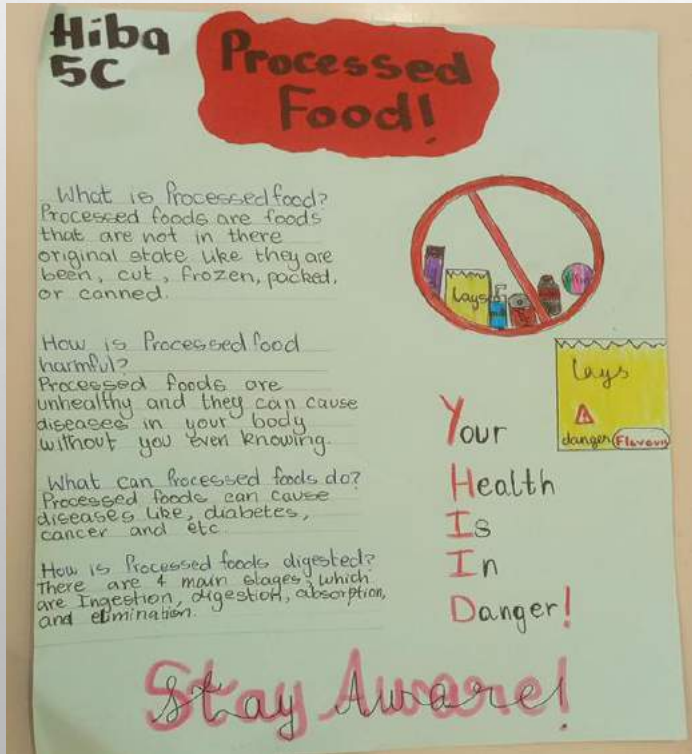 Hiba
5C
Processed
Food!
What is Processed food?
Processed foods are foods
that are not in there
original state like they are
been, cut, frozen, packed,
or canned.
How is Processed food
harmful?
Processed foods are
unhealthy and they can cause
diseases in your body
without you even knowing.
What can Processed foods do?
Processed foods can cause
diseases like, diabetes,
cancer and etc
How is Processed foods digested?
There are 4 main stages, which
are Ingestion, digestion, absorption,
and elimination.
Lays
Lays
danger Flavour
Your
Health
Is
In
Danger!
Stay Aware!